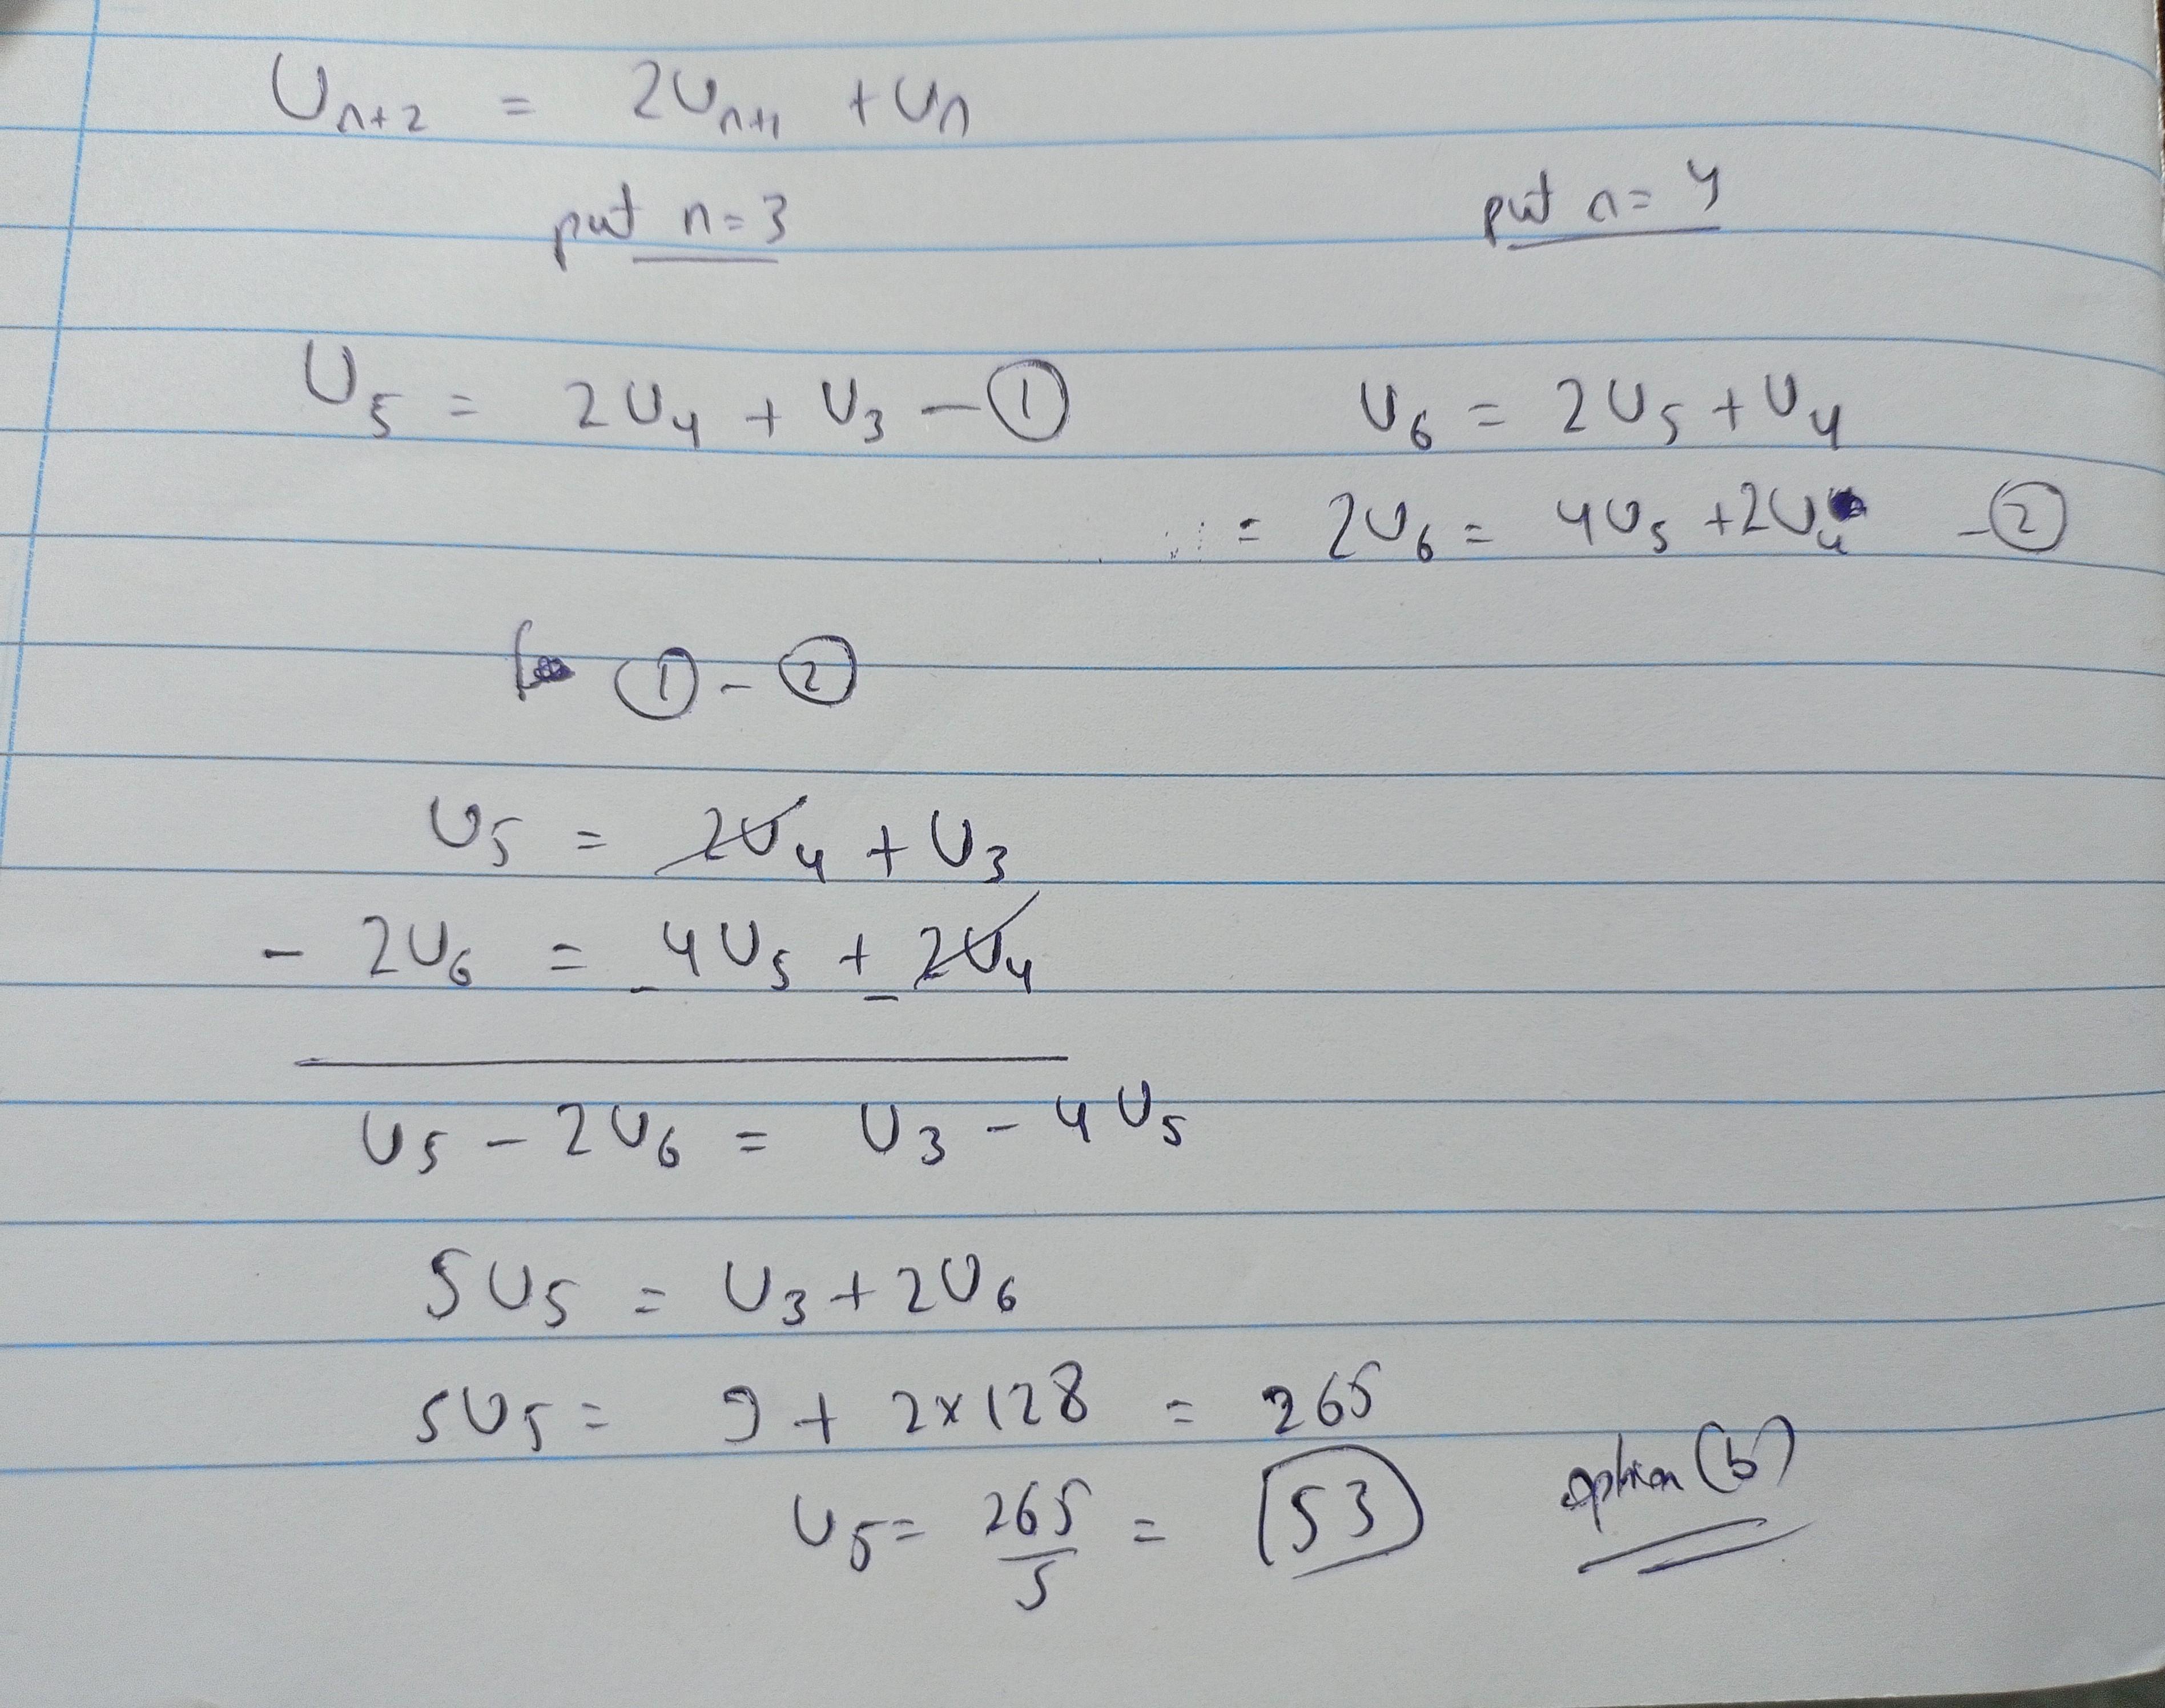 U_{n+2} = 2U_{n+1} + U_n
put n=3
put n=4
U_5 = 2U_4 + U_3 — ①
U_6 = 2U_5 + U_4
= 2U_6 = 4U_5 + 2U_4 - ②
① - ②
U_5 = 2U_4 + U_3
- 2U_6 = 4U_5 + 2U_4
- -
U_5 - 2U_6 = U_3 - 4U_5
5U_5 = U_3 + 2U_6
5U_5 = 9 + 2×128 = 265
U_5 = 265/5 = 53 option (b)